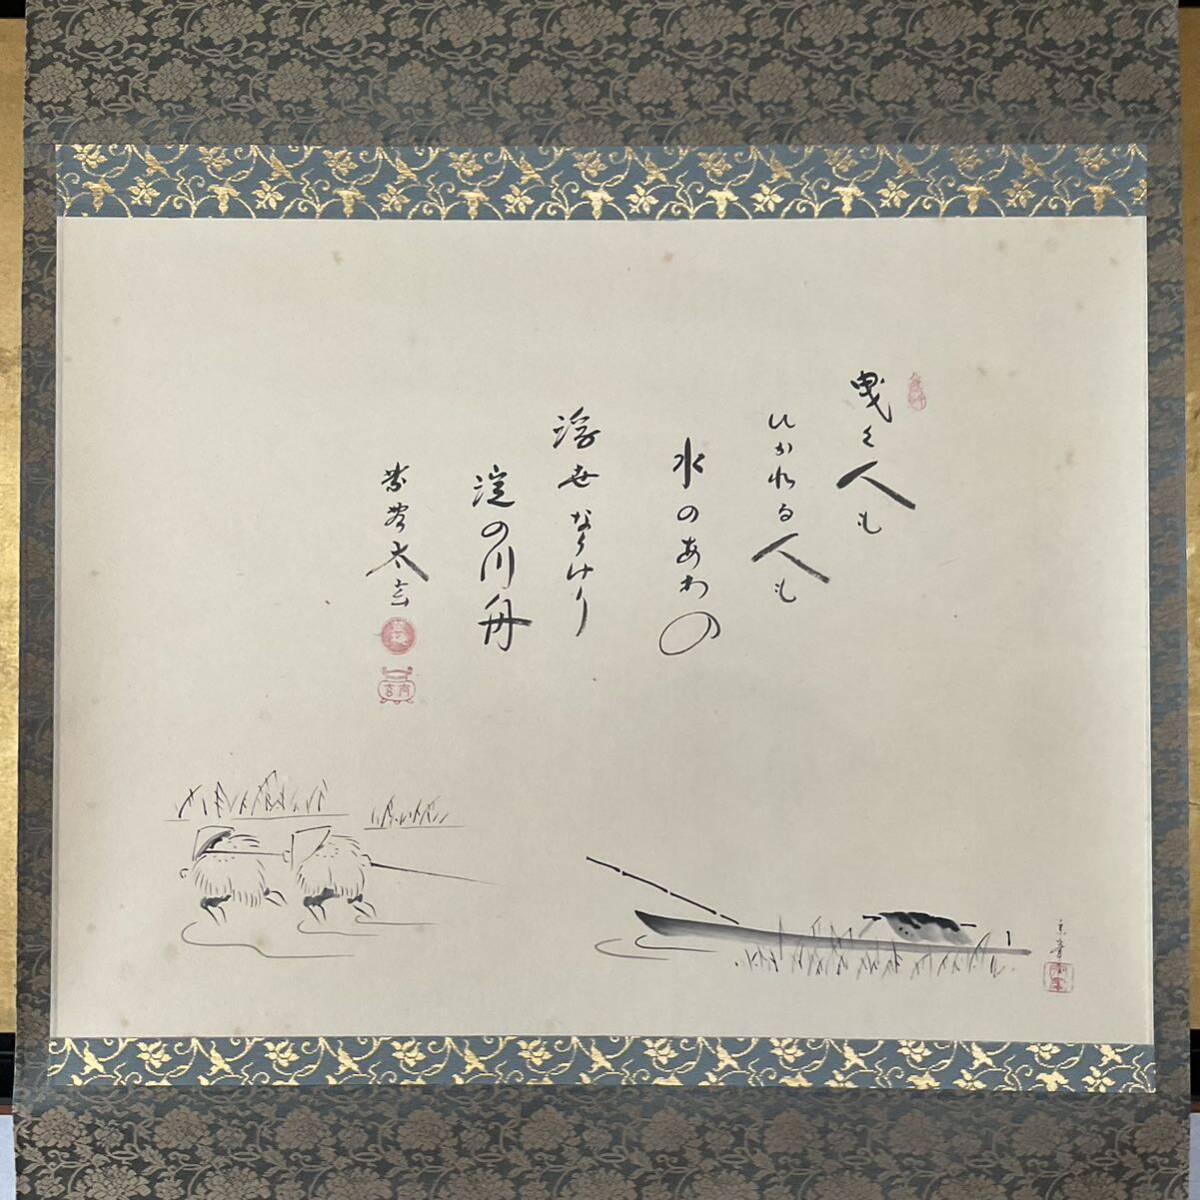 曳く人も
ひかれる人も
水のあわの
浮世なりけり
淀の川舟
紫野太玄